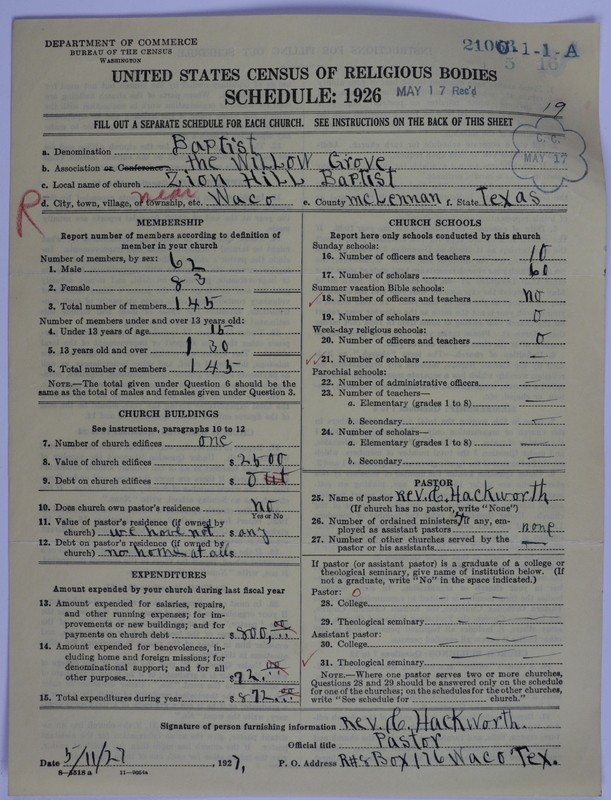 DEPARTMENT OF COMMERCE
BUREAU OF THE CENSUS
WASHINGTON
1-1-A
UNITED STATES CENSUS OF RELIGIOUS BODIES
SCHEDULE: 1926
MAY 17 Rec'd
19
FILL OUT A SEPARATE SCHEDULE FOR EACH CHURCH. SEE INSTRUCTIONS ON THE BACK OF THIS SHEET
C. C.
MAY 17
a. Denomination Baptist
b. Association or Conference the Willow Grove
c. Local name of church Zion Hill Baptist
R
d. City, town, village, or township, etc. near Waco e. County McLennan f. State Texas
MEMBERSHIP
Report number of members according to definition of
member in your church
Number of members, by sex:
1. Male 62
2. Female 83
3. Total number of members 145
Number of members under and over 13 years old:
4. Under 13 years of age 15
5. 13 years old and over 130
6. Total number of members 145
NOTE.—The total given under Question 6 should be the
same as the total of males and females given under Question 3.
CHURCH BUILDINGS
See instructions, paragraphs 10 to 12
7. Number of church edifices one
8. Value of church edifices $ 2500
9. Debt on church edifices $ out
10. Does church own pastor's residence no
Yes or No
11. Value of pastor's residence (if owned by
church) we have not $ any
12. Debt on pastor's residence (if owned by
church) no home at all $
EXPENDITURES
Amount expended by your church during last fiscal year
13. Amount expended for salaries, repairs,
and other running expenses; for im-
provements or new buildings; and for
payments on church debt $ 800.00
14. Amount expended for benevolences, in-
cluding home and foreign missions; for
denominational support; and for all
other purposes $ 72.00
15. Total expenditures during year $ 872.00
CHURCH SCHOOLS
Report here only schools conducted by this church
Sunday schools:
16. Number of officers and teachers 10
17. Number of scholars 60
Summer vacation Bible schools:
18. Number of officers and teachers no
19. Number of scholars 0
Week-day religious schools:
20. Number of officers and teachers 0
21. Number of scholars —
Parochial schools:
22. Number of administrative officers —
23. Number of teachers—
a. Elementary (grades 1 to 8) —
b. Secondary —
24. Number of scholars—
a. Elementary (grades 1 to 8) —
b. Secondary —
PASTOR
25. Name of pastor Rev. C. Hackworth
(If church has no pastor, write "None")
26. Number of ordained ministers, if any, em-
ployed as assistant pastors none
27. Number of other churches served by the
pastor or his assistants —
If pastor (or assistant pastor) is a graduate of a college or
theological seminary, give name of institution below. (If
not a graduate, write "No" in the space indicated.)
Pastor: 0
28. College — — —
29. Theological seminary —
Assistant pastor:
30. College —
31. Theological seminary —
NOTE.—Where one pastor serves two or more churches,
Questions 28 and 29 should be answered only on the schedule
for one of the churches; on the schedules for the other churches,
write "See schedule for church."
Signature of person furnishing information Rev. C. Hackworth.
Official title Pastor
Date 5/11/27, 1927, P. O. Address R#8 Box 176 Waco Tex.
8-5518 a